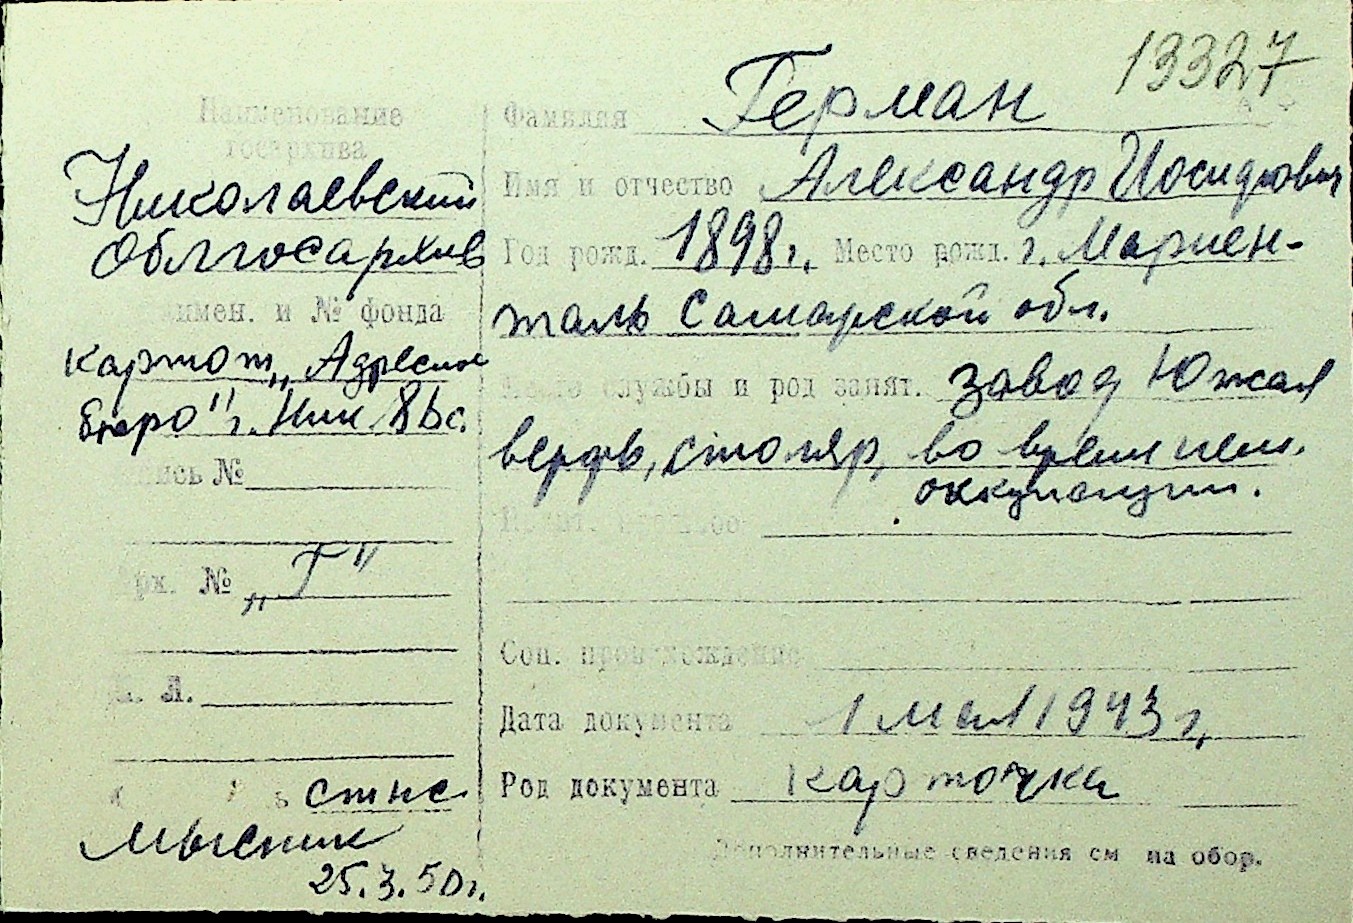 13327
Наименование
госархива
Николаевский
Облгосархив
имен. и № фонда
картот „Адресное
бюро" г. Ник.
опись №
арх. № „Г"
Л. Л.
Мысник
25.3.50 г.
Фамилия Герман
Имя и отчество Александр Иосифович
Год рожд. 1898 г. Место рожд. г. Мариен-
таль Самарской обл.
Место службы и род занят. завод Южная
верфь, столяр, во время нем.
оккупации.
Соц. происхождение
Дата документа 1 мая 1943 г.
Род документа карточка
Дополнительные сведения см на обор.